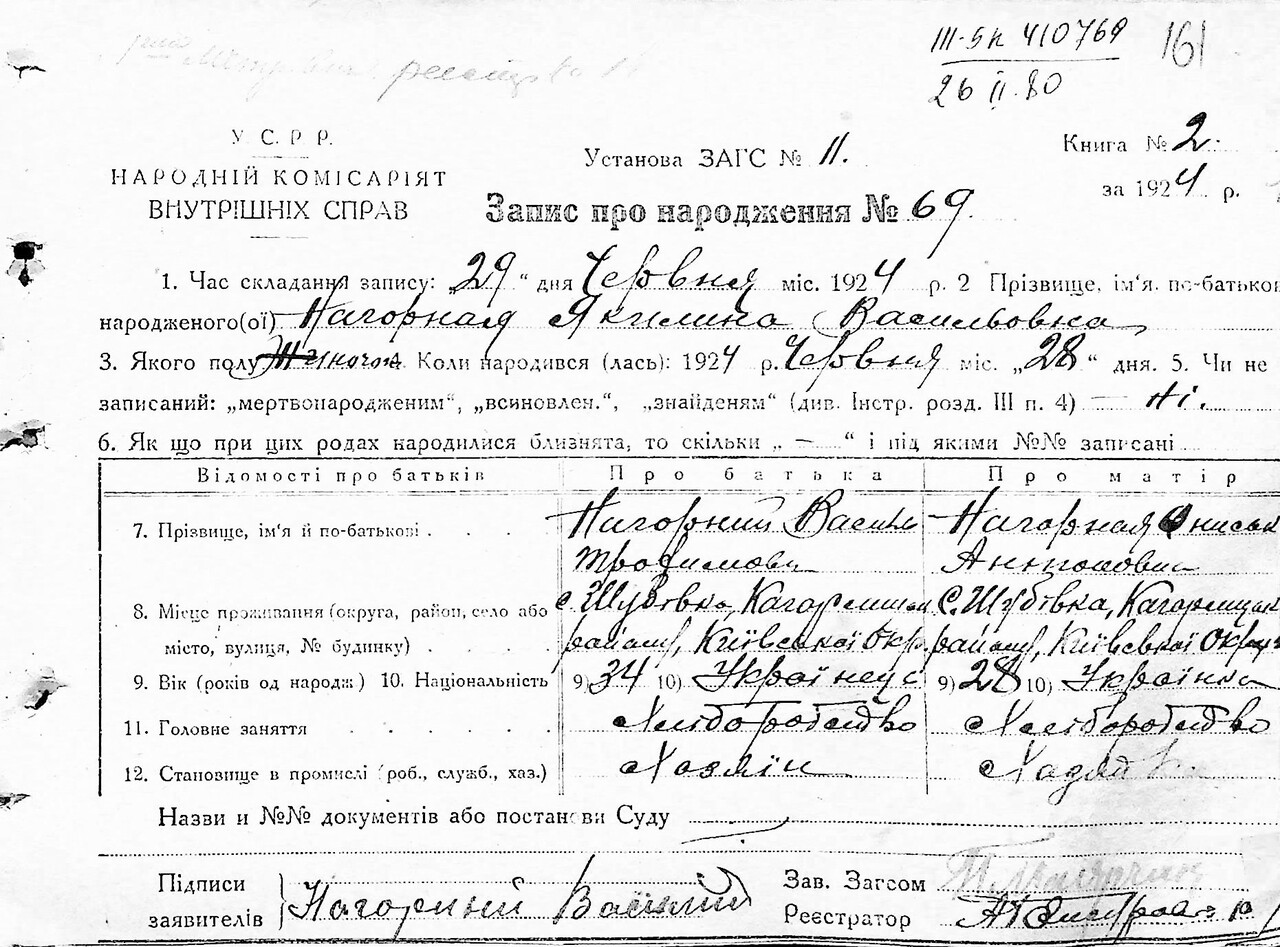 III-БК 410769
161
26 II.80
У С. Р Р.
НАРОДНІЙ КОМІСАРІЯТ
ВНУТРІШНІХ СПРАВ
Установа ЗАГС № 11.
Книга № 2
за 1924 р.
Запис про народження № 69.
1. Час складання запису: „29“ дня Червня міс. 1924 р. 2 Прізвище, ім'я, по-батьков
народженого(ої) Нагорная Якилина Васильовна
3. Якого полу Жіночоі Коли народився (лась): 1924 р. Червня міс. „28“ дня. 5. Чи не
записаний: „мертвонародженим“, „всиновлен.“, „знайденям“ (див. Інстр. розд. III п. 4) — Ні.
6. Як що при цих родах народилися близнята, то скільки „ — “ і під якими №№ записані
Відомості про батьків Про батька Про матір
7. Прізвище, ім'я й по-батькові . . . . Нагорний Василь Нагорная Ониська
Трофимович Антоновна
8. Місце проживання (округа, район, село або с. Шубівка, Кагарлицьк С. Шубівка, Кагарлицьк
місто, вулиця, № будинку) . . . . району, Київської Окр. району, Київської Округ
9. Вік (років од народж.) 10. Національність 9) 34 10) Українець 9) 28 10) Українка
11. Головне заняття . . . . . . Хліборобство Хліборобство
12. Становище в промислі (роб., служб., хаз.) Хазяїн Хазяйка
Назви и №№ документів або постанови Суду
Підписи
заявителів Нагорний Василий
Зав. Загсом
Реєстратор